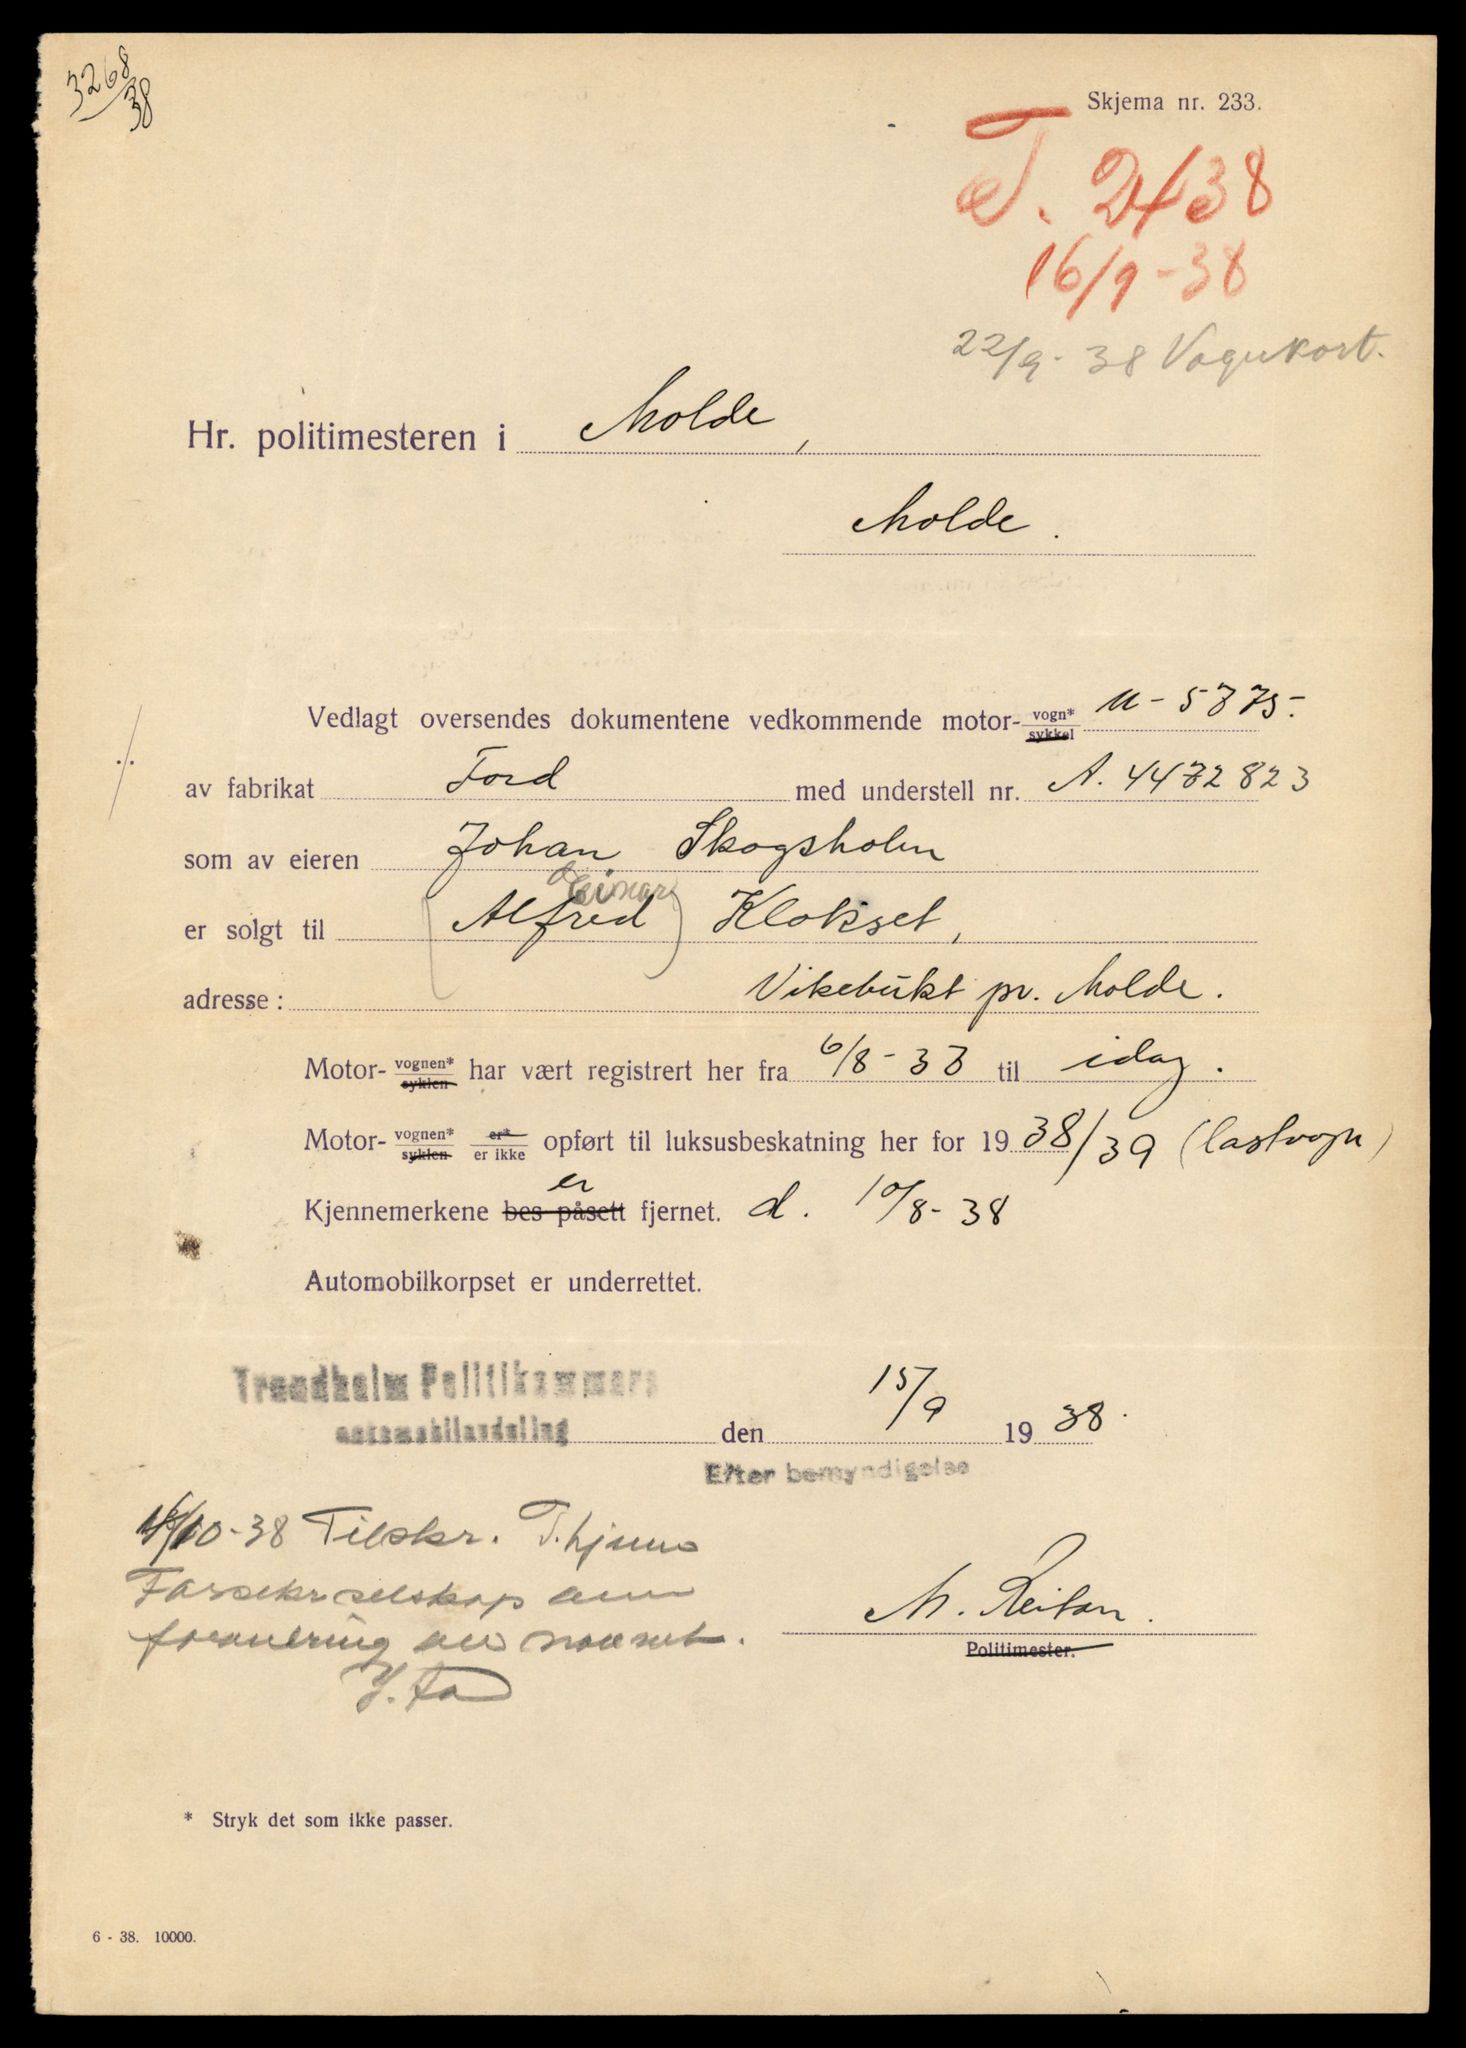 3268/38
Skjema nr. 233.
T. 2438
16/9-38
22/9-38 Vognkort.
Hr. politimesteren i Molde,
Molde.
Vedlagt oversendes dokumentene vedkommende motor- vogn* sykkel U-5375.
av fabrikat Ford med understell nr. A. 4472823
som av eieren Johan Skogsholm
Einar
er solgt til (Alfred) Klokset,
adresse: Vikebukt pr. Molde.
Motor- vognen* syklen har vært registrert her fra 6/8-33 til idag.
Motor- vognen* syklen er* er ikke opført til luksusbeskatning her for 19 38/39 (lastvogn)
er
Kjennemerkene bes påsett fjernet. d. 10/8-38
Automobilkorpset er underrettet.
Trondheim Politikammers
automobilavdeling den 15/9 1938.
Efter bemyndigelse
/10-38 Tilskr.
M. Reitan.
Politimester.
* Stryk det som ikke passer.
6 - 38. 10000.